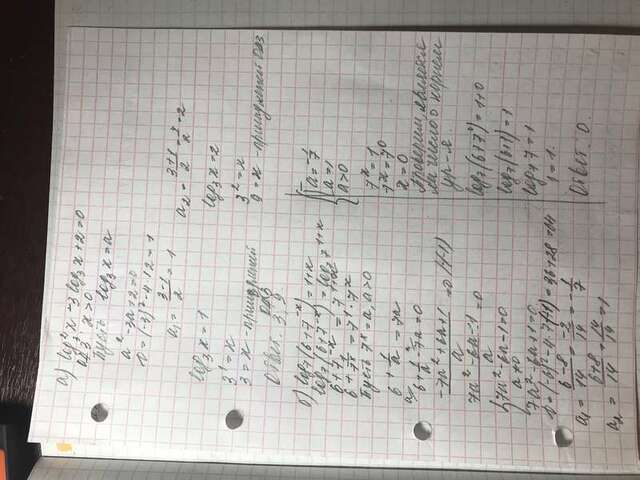 а) log₃²x - 3log₃x + 2 = 0
ОДЗ x > 0
Пусть log₃x = a
a² - 3a + 2 = 0
D = (-3)² - 4·1·2 = 1
a₁ = (3-1)/2 = 1
a₂ = (3+1)/2 = 4/2 = 2
log₃x = 1
log₃x = 2
3¹ = x
3² = x
3 = x - принадлежит ОДЗ
9 = x - принадлежит ОДЗ
Ответ: 3, 9
б) log₇(6+7⁻ˣ) = 1+x
log₇(6+7⁻ˣ) = log₇7¹⁺ˣ
6+7⁻ˣ = 7¹⁺ˣ
6 + 1/7ˣ = 7¹·7ˣ
Пусть 7ˣ = a, a > 0
6 + 1/a = 7a
6 + 1/a - 7a = 0
(-7a² + 6a + 1)/a = 0 |·(-1)
(7a² - 6a - 1)/a = 0
{7a² - 6a - 1 = 0
a ≠ 0
7a² - 6a + 1 = 0
D = (-6)² - 4·7·(-1) = 36 + 28 = 64
a₁ = (6-8)/14 = -2/14 = -1/7
a₂ = (6+8)/14 = 14/14 = 1
{[a = -1/7
a = 1
a > 0
7ˣ = 1
7ˣ = 7⁰
x = 0
Проверим, является
ли число 0 корнем
ур-я.
log₇(6+7⁰) = 1+0
log₇(6+1) = 1
log₇7 = 1
1 = 1.
Ответ: 0.